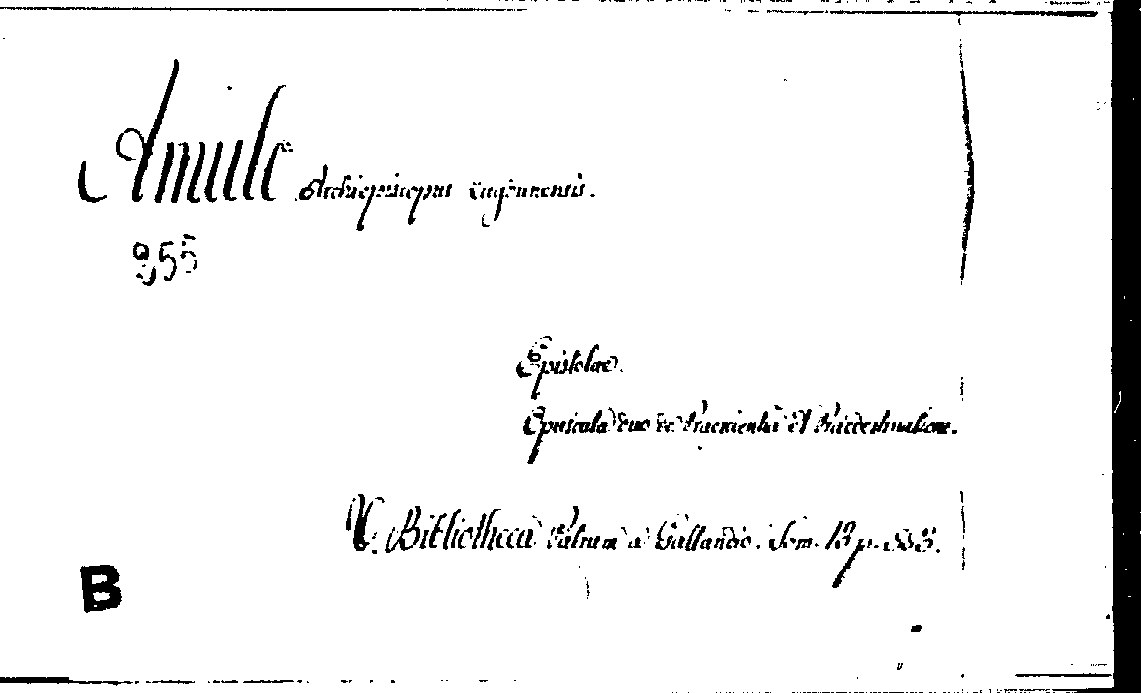 Amulo Archiepiscopus Lugdunensis.
855
Epistolae.
Opuscula duo de Praescientia et Praedestinatione.
V. Bibliotheca Patrum a Gallandio. Tom. 13 p.
B